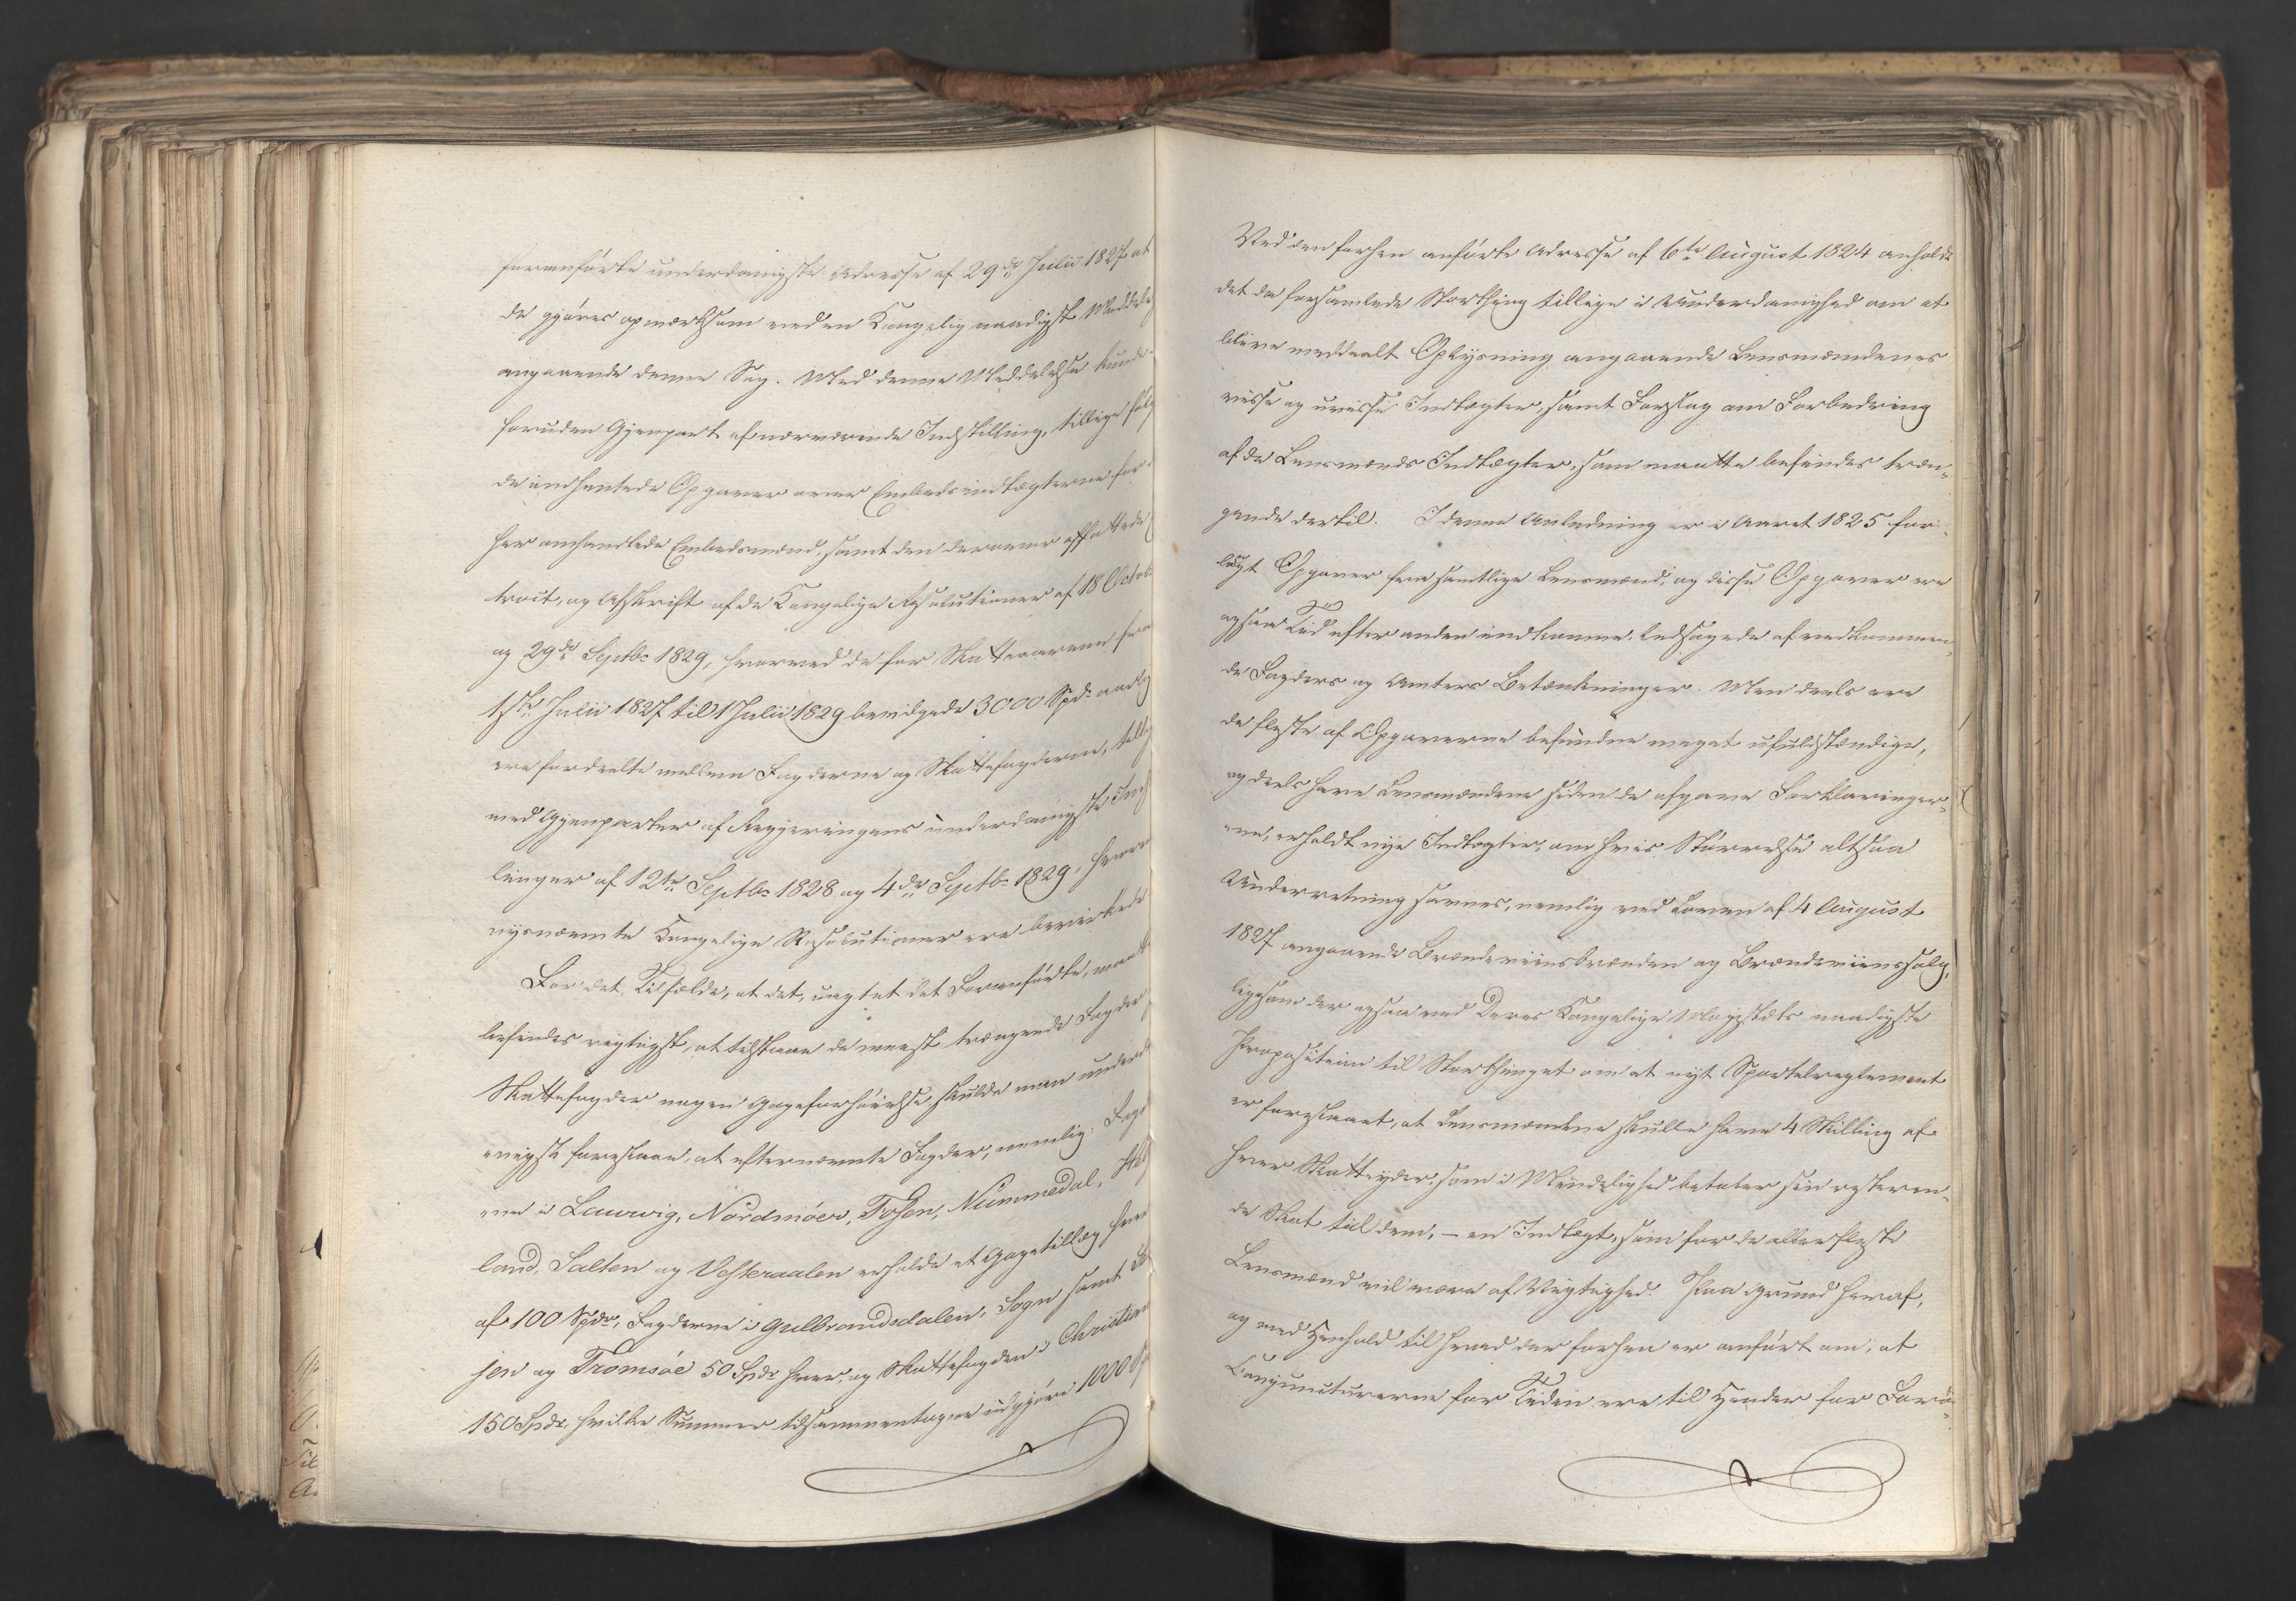 foranførte underdanigste Adresse af 29de Julii 1827 at
de gjøres opmærksom ved en Kongelig naadigst Meddele
angaaende denne Sag. Med denne Meddelelse kunde
foruden Gjenpart af nærværende Indstilling, tillige følg
de indhentede Opgaver over Embedsindtægterne for
her omhandlede Embedsmænd, samt den derover affattede
og Afskrift af de Kongelige Resolutioner af 18 Octob
og 29de Septbr 1829, hvorved de for Skatteaarene fra
1ste Julii 1827 til 1 Julii 1829 bevilgede 3000 Spd. aarlig
ere fordeelte mellem Fogderne og Skattefogderne, tillig
med Gjenparter af Regjeringens underdanigste Inds
linger af 12te Septbr 1828 og 4de Septbr 1829, hvor
nysnævnte Kongelige Resolutioner ere bevirkede
For det Tilfælde, at det, uagtet det Foranførte, maatte
befindes rigtigst, at tilstaae de meest trængende Fogder
Skattefogder nogen Gageforhøielse, skulde man under
nigst foreslaae, at efternævnte Fogder, nemlig: Fogd
erne i Laurvig, Nordmøer, Fosen, Nummedal, Hel
land, Salten og Vesteraalen erholde et Gagetillæg hver
af 100 Spdr, Fogderne i Gulbrandsdalen, Sogn samt Se
jen og Tromsøe 50 Spdr hver, og Skattefogden i Christian
150 Spdr, hvilke Summer tilsammentagne udgjøre 1000 Sp
Ved den forhen anførte Adresse af 6te August 1824 anholdt
det da forsamlede Storthing tillige i Underdanighed om at
blive meddeelt Oplysning angaaende Lensmændenes
visse og uvisse Indtægter, samt Forslag om Forbedring
af de Lensmænds Indtægter, som maatte befindes træn-
gende dertil. I denne Anledning er i Aaret 1825 for-
langt Opgaver fra samtlige Lensmænd, og disse Opgaver ere
ogsaa Tid efter anden indkomne, ledsagede af vedkommen-
de Fogders og Amters Betænkninger. Men deels ere
de fleste af Opgaverne befundne meget ufuldstændige,
og deels have Lensmændene siden de afgave Forklaringer-
ne, erholdt nye Indtægter, om hvis Størrelse altsaa
Underretning savnes, nemlig ved Loven af 4 August
1827 angaaende Brændeviinsbrænden og Brændeviinssalg,
ligesom der ogsaa ved Deres Kongelige Majestæts naadigste
Proposition til Storthinget om et nyt Sportelreglement
er foreslaaet, at Lensmændene skulle have 4 Skilling af
hver Skatteyder, som i Mindelighed betaler sin resteren-
de Skat til dem, – en Indtægt, som for de allerfleste
Lensmænd vil være af Vigtighed. Paa Grund heraf,
og med Henhold til hvad der forhen er anført om, at
Conjuncturerne for Tiden ere til Hinder for Forø-